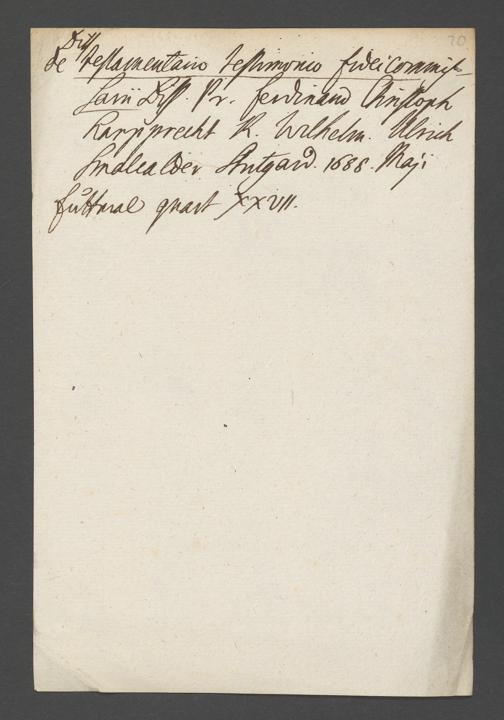 Diss
de testamentario testimonio fideicommis-
sarii Diss. Pr. Ferdinand Christoph
Harpprecht R. Wilhelm. Ulrich
Smalcalder Stutgard. 1688. Maji
futteral quart XXVII.
20